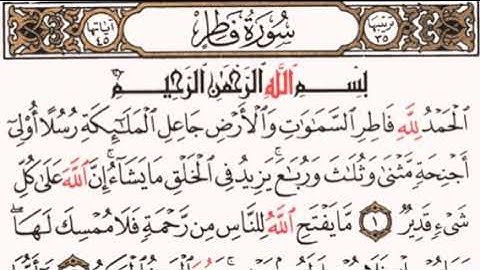 ترتيبها ٣٥ سُورَةُ فَاطِرٍ آياتها ٤٥
بِسْمِ اللَّهِ الرَّحْمَٰنِ الرَّحِيمِ
الْحَمْدُ لِلَّهِ فَاطِرِ السَّمَٰوَٰتِ وَالْأَرْضِ جَاعِلِ الْمَلَٰٓئِكَةِ رُسُلًا أُو۟لِىٓ
أَجْنِحَةٍ مَّثْنَىٰ وَثُلَٰثَ وَرُبَٰعَ ۚ يَزِيدُ فِى الْخَلْقِ مَا يَشَآءُ ۚ إِنَّ اللَّهَ عَلَىٰ كُلِّ
شَىْءٍ قَدِيرٌ ١ مَّا يَفْتَحِ اللَّهُ لِلنَّاسِ مِن رَّحْمَةٍ فَلَا مُمْسِكَ لَهَا ۖ